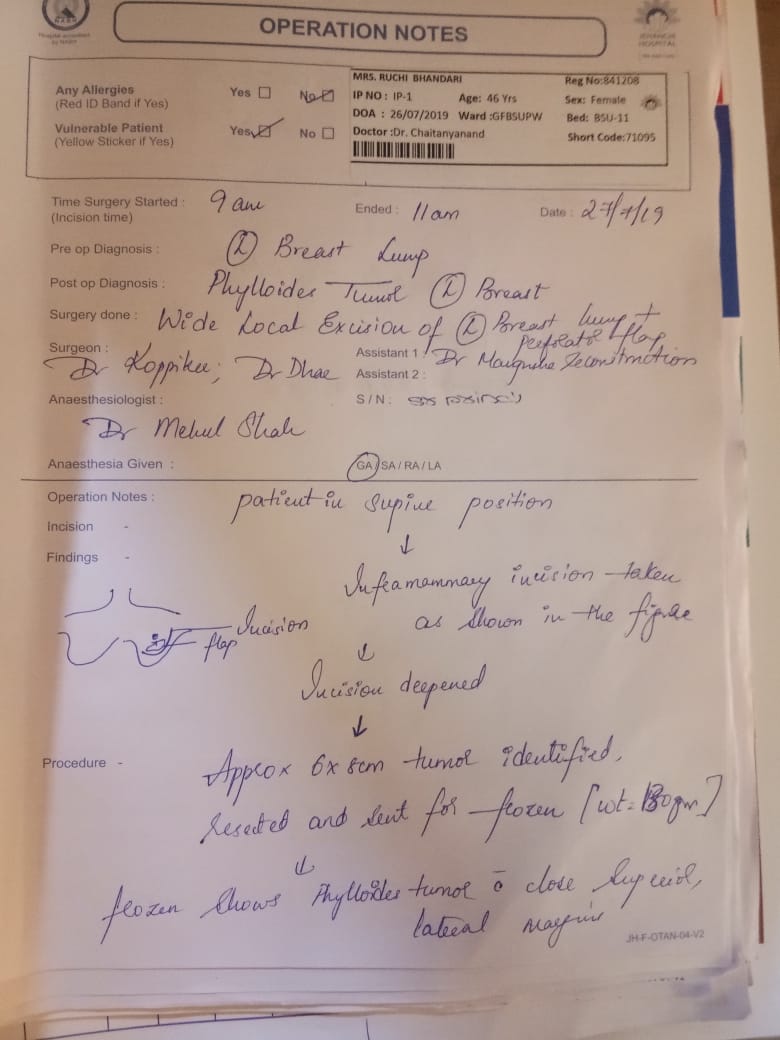 OPERATION NOTES
JEHANGIR
HOSPITAL
Any Allergies
(Red ID Band if Yes)
Yes No
Vulnerable Patient
(Yellow Sticker if Yes)
Yes No
MRS. RUCHI BHANDARI Reg No:841208
IP NO : IP-1 Age: 46 Yrs Sex: Female
DOA : 26/07/2019 Ward :GFBSUPW Bed: BSU-11
Doctor :Dr. Chaitanyanand Short Code:71095
Time Surgery Started : 9 am Ended : 11am Date : 27/7/19
(Incision time)
Pre op Diagnosis : (L) Breast Lump
Post op Diagnosis : Phylloides Tumor (L) Breast
Surgery done : Wide Local Excision of (L) Breast lump +
Perforator flap
reconstruction
Surgeon : Dr Koppiker, Dr Dhar
Assistant 1 : Dr
Assistant 2 :
Anaesthesiologist : S/N :
Dr Mehul Shah
Anaesthesia Given : GA / SA / RA / LA
Operation Notes : patient in supine position
Incision -
↓
Findings -
Inframammary incision taken
as shown in the figure
Incision
flap
↓
Incision deepened
↓
Procedure - Approx 6x8cm tumor identified,
resected and sent for frozen [wt= gm]
↓
frozen shows Phylloides tumor c̄ close superior,
lateral margins
JH-F-OTAN-04-V2